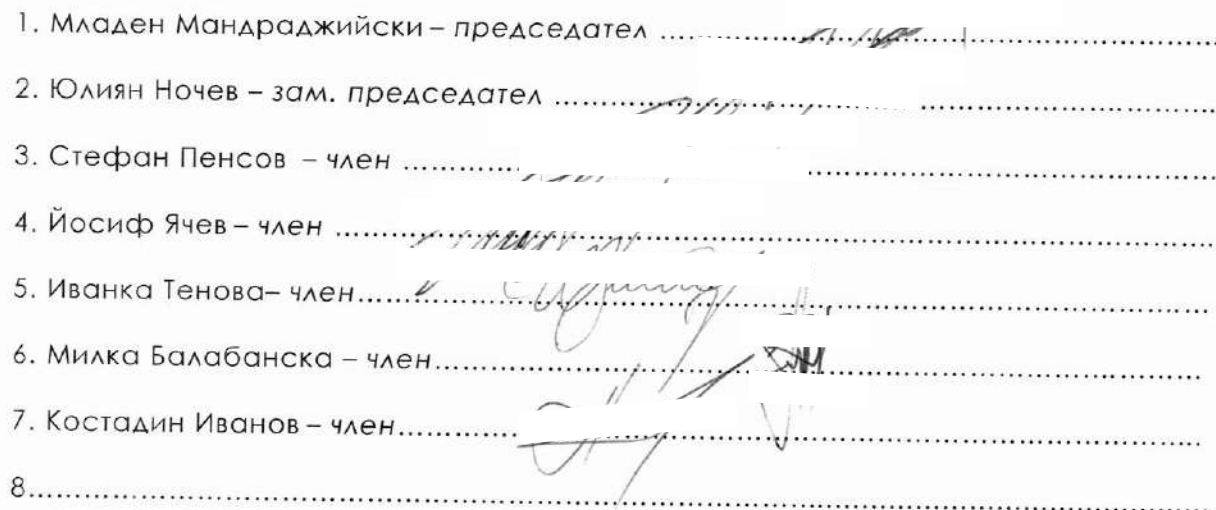 1. Младен Мандраджийски – председател ........................................
2. Юлиян Ночев – зам. председател ........................................
3. Стефан Пенсов – член ........................................
4. Йосиф Ячев – член ........................................
5. Иванка Тенова– член........................................
6. Милка Балабанска – член........................................
7. Костадин Иванов – член........................................
8........................................